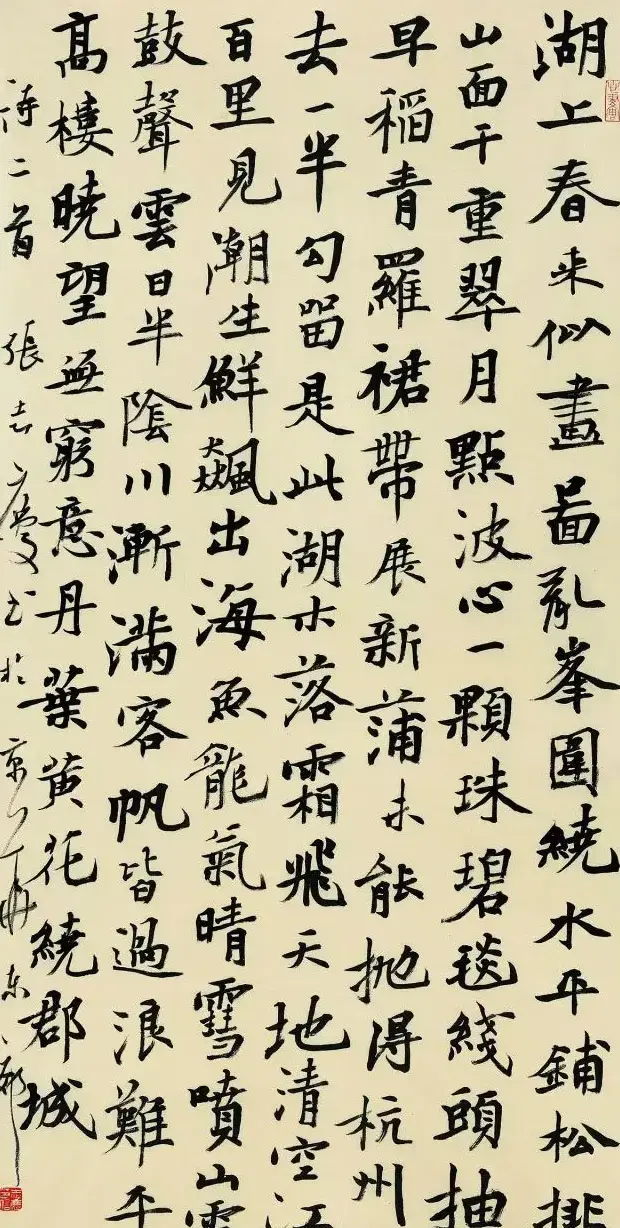 湖上春来似畫啚亂峯圍繞水平鋪松排
山面千重翠月點波心一顆珠碧毯綫頭抽
早稻青羅裙帶展新蒲未能抛得杭州
去一半勾留是此湖木落霜飛天地清空江
百里見潮生鮮飈出海魚龍氣晴雪噴山雷
鼓聲雲日半陰川漸滿客帆皆過浪難平
高樓曉望無窮意丹葉黄花繞郡城
詩二首 張志慶书於京东郊